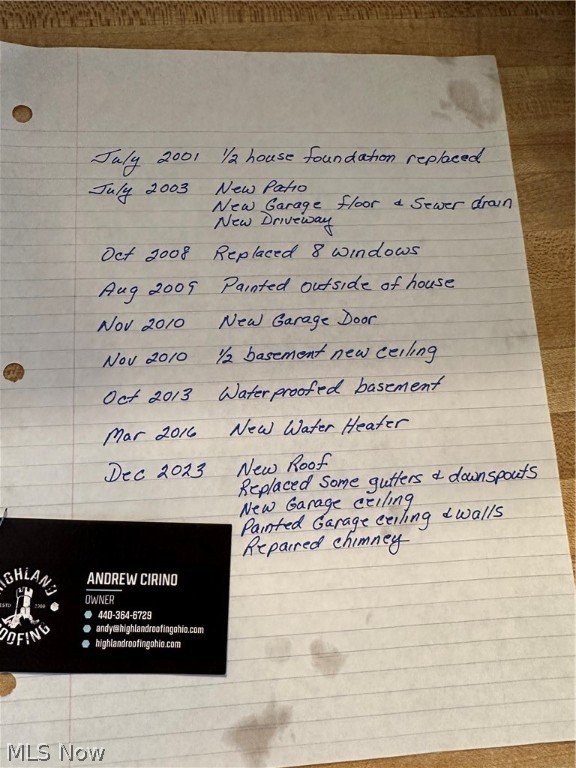 July 2001 1/2 house foundation replaced
July 2003 New Patio
New Garage floor & Sewer drain
New Driveway
Oct 2008 Replaced 8 windows
Aug 2009 Painted outside of house
Nov 2010 New Garage Door
Nov 2010 1/2 basement new ceiling
Oct 2013 Waterproofed basement
Mar 2016 New Water Heater
Dec 2023 New Roof
Replaced some gutters & downspouts
New Garage ceiling
Painted Garage ceiling & walls
Repaired chimney
HIGHLAND
ROOFING
ANDREW CIRINO
OWNER
440-364-6729
andy@highlandroofingohio.com
highlandroofingohio.com
MLS Now